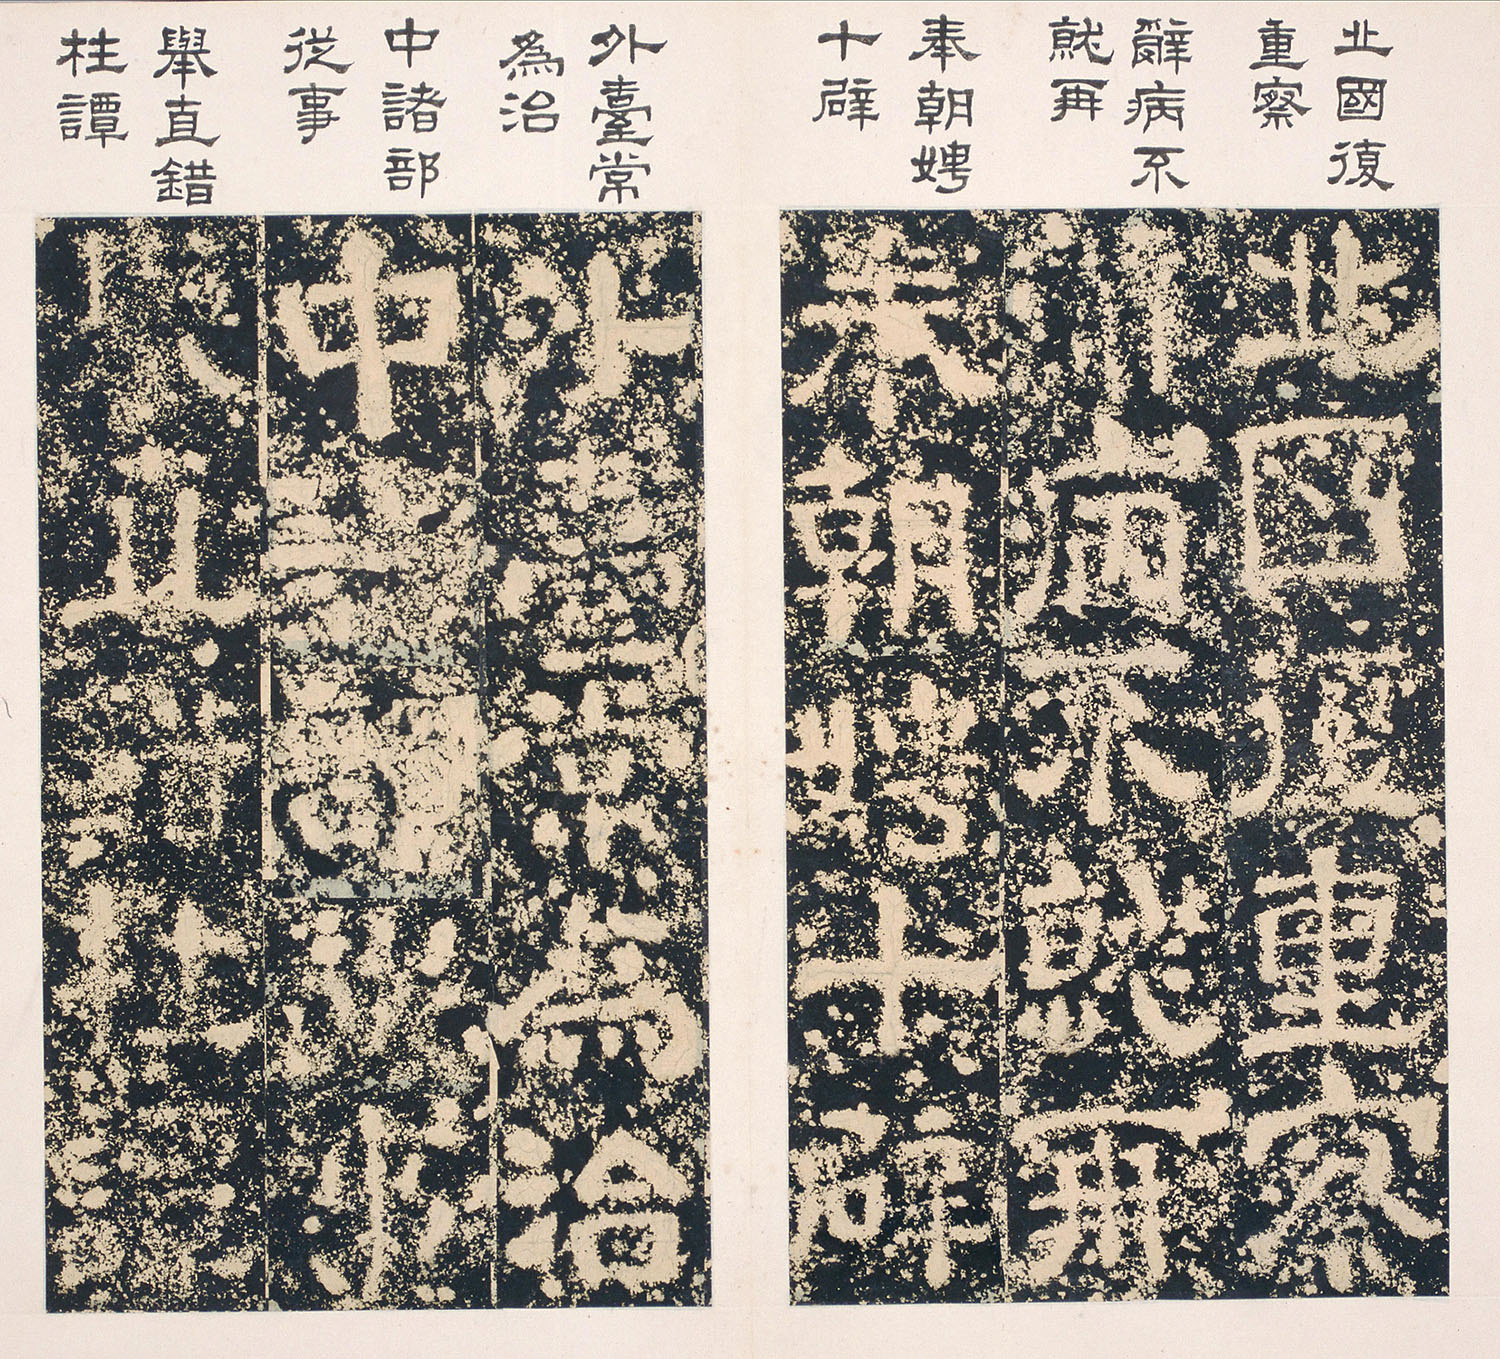 北國復
重察
辭病不
就再
奉朝娉
十辟
外臺常
為治
中諸部
從事
舉直錯
枉譚
北國復重察
辭病不就再
奉朝娉十辟
外臺常為治
中
直